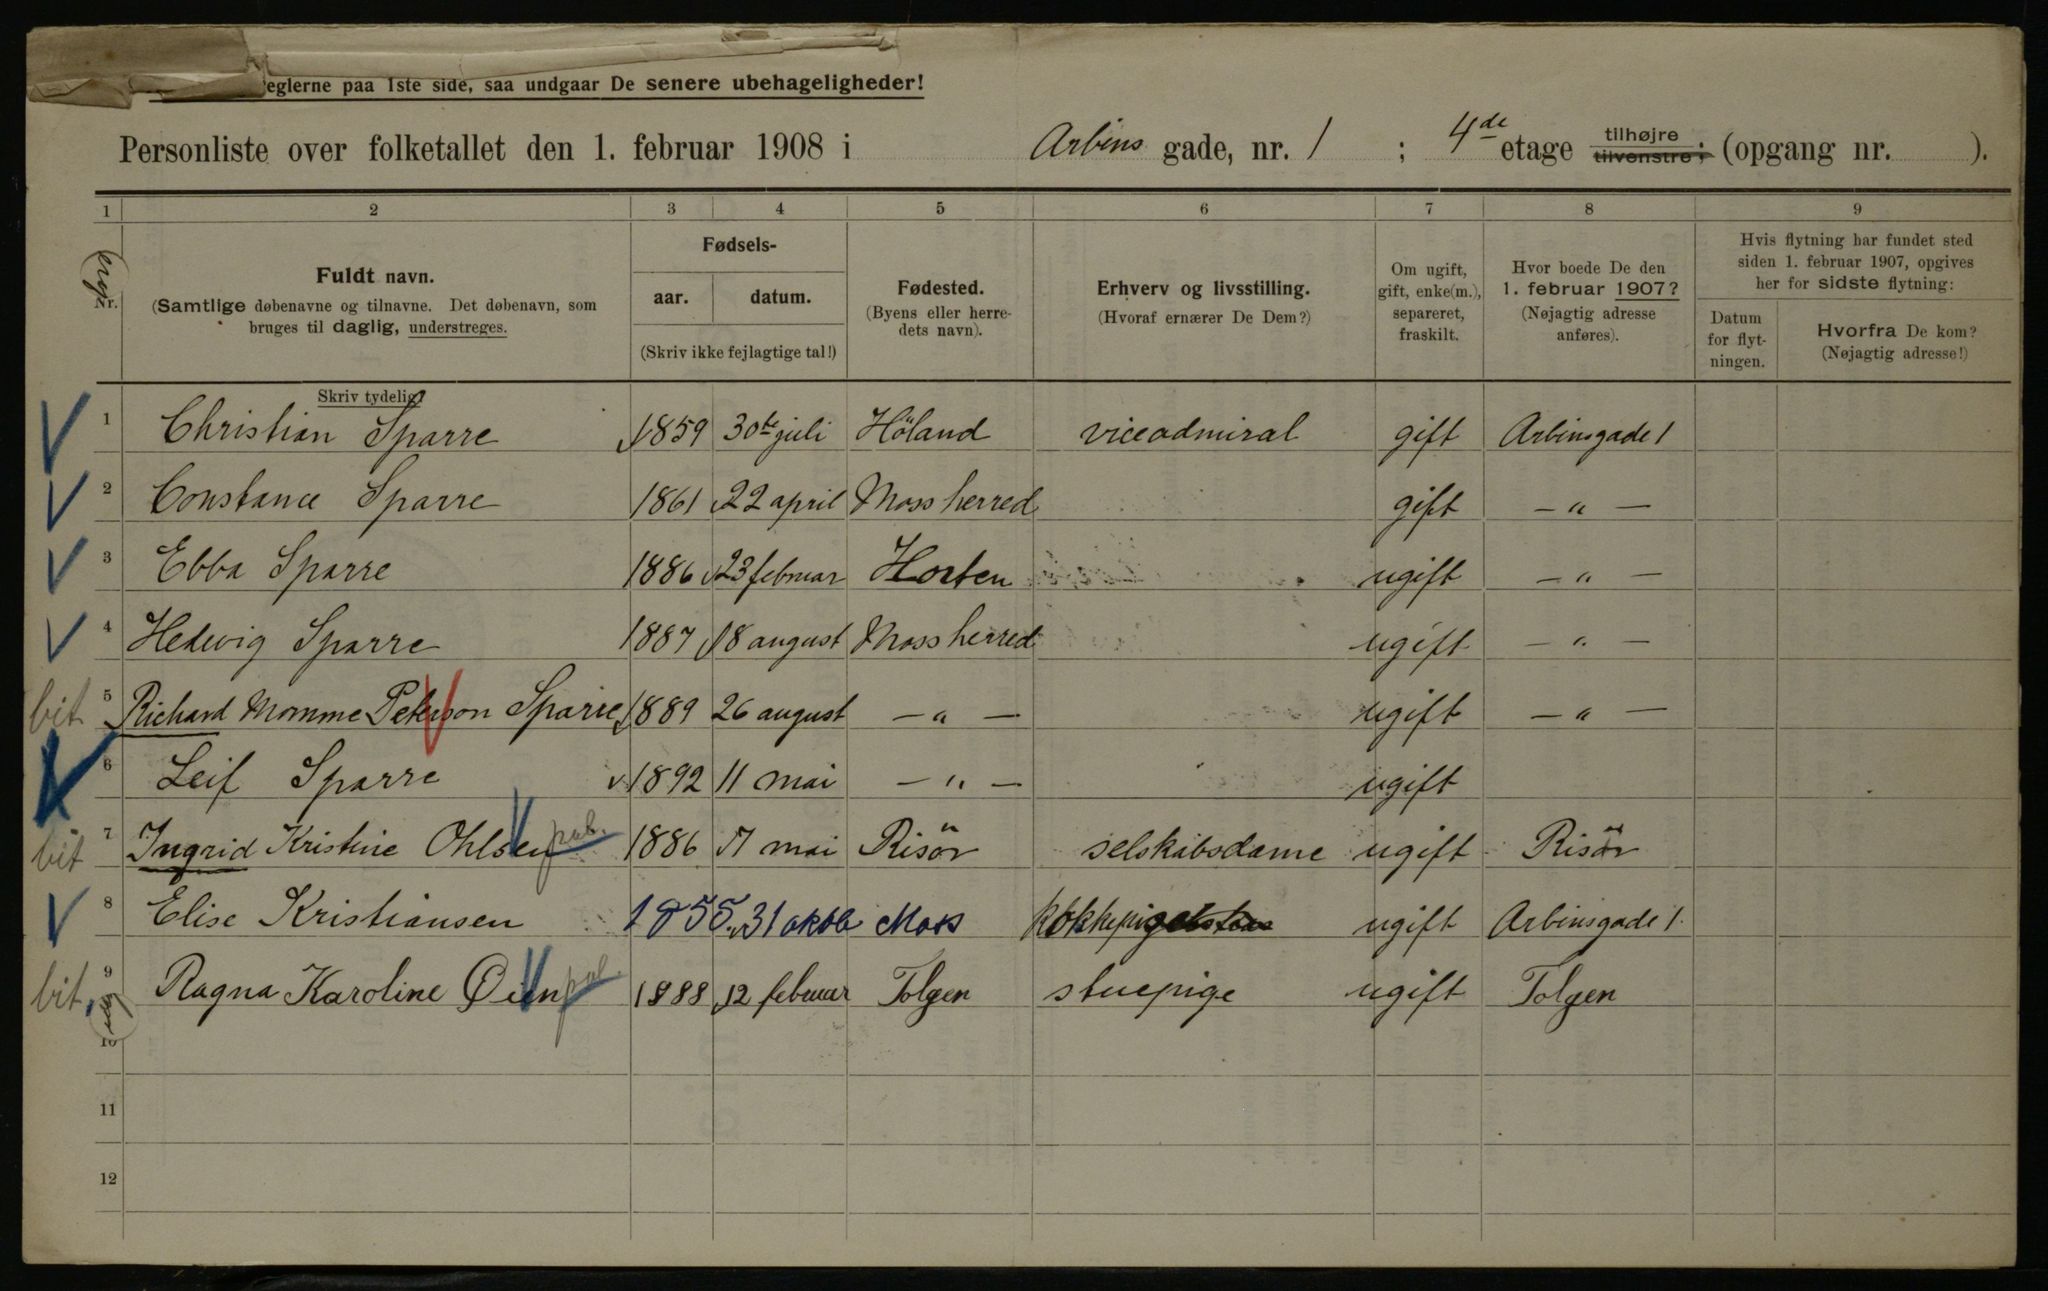 eglerne paa 1ste side, saa undgaar De senere ubehageligheder!
Personliste over folketallet den 1. februar 1908 i Arbins gade, nr. 1 ; 4de etage tilhøjre tilvenstre; (opgang nr. ).
1 2 3 4 5 6 7 8 9
Nr.
Fuldt navn.
(Samtlige døbenavne og tilnavne. Det døbenavn, som
bruges til daglig, understreges.
Fødsels-
aar. datum.
(Skriv ikke fejlagtige tal!)
Fødested.
(Byens eller herre-
dets navn).
Erhverv og livsstilling.
(Hvoraf ernærer De Dem?)
Om ugift,
gift, enke(m.),
separeret,
fraskilt.
Hvor boede De den
1. februar 1907?
(Nøjagtig adresse
anføres).
Hvis flytning har fundet sted
siden 1. februar 1907, opgives
her for sidste flytning:
Datum
for flyt-
ningen.
Hvorfra De kom?
(Nøjagtig adresse!)
Skriv tydelig!
1 Christian Sparre 1859 30te juli Höland viceadmiral gift Arbinsgade 1
2 Constance Sparre 1861 22 april Moss herred gift — " —
3 Ebba Sparre 1886 23 februar Horten ugift — " —
4 Hedevig Sparre 1887 18 august Moss herred ugift — " —
bit 5 Richard Momme Peterson Sparre 1889 26 august — " — ugift — " —
6 Leif Sparre 1892 11 mai — " — ugift
bit 7 Ingrid Kristine Ohlsen 1886 7 mai Risör selskabsdame ugift Risör
8 Elise Kristiansen 1855 31 oktb Moss kokkepige ugift Arbinsgade 1.
bit. 9 Ragna Karoline Öien 1888 12 februar Tolgen stuepige ugift Tolgen
10
11
12